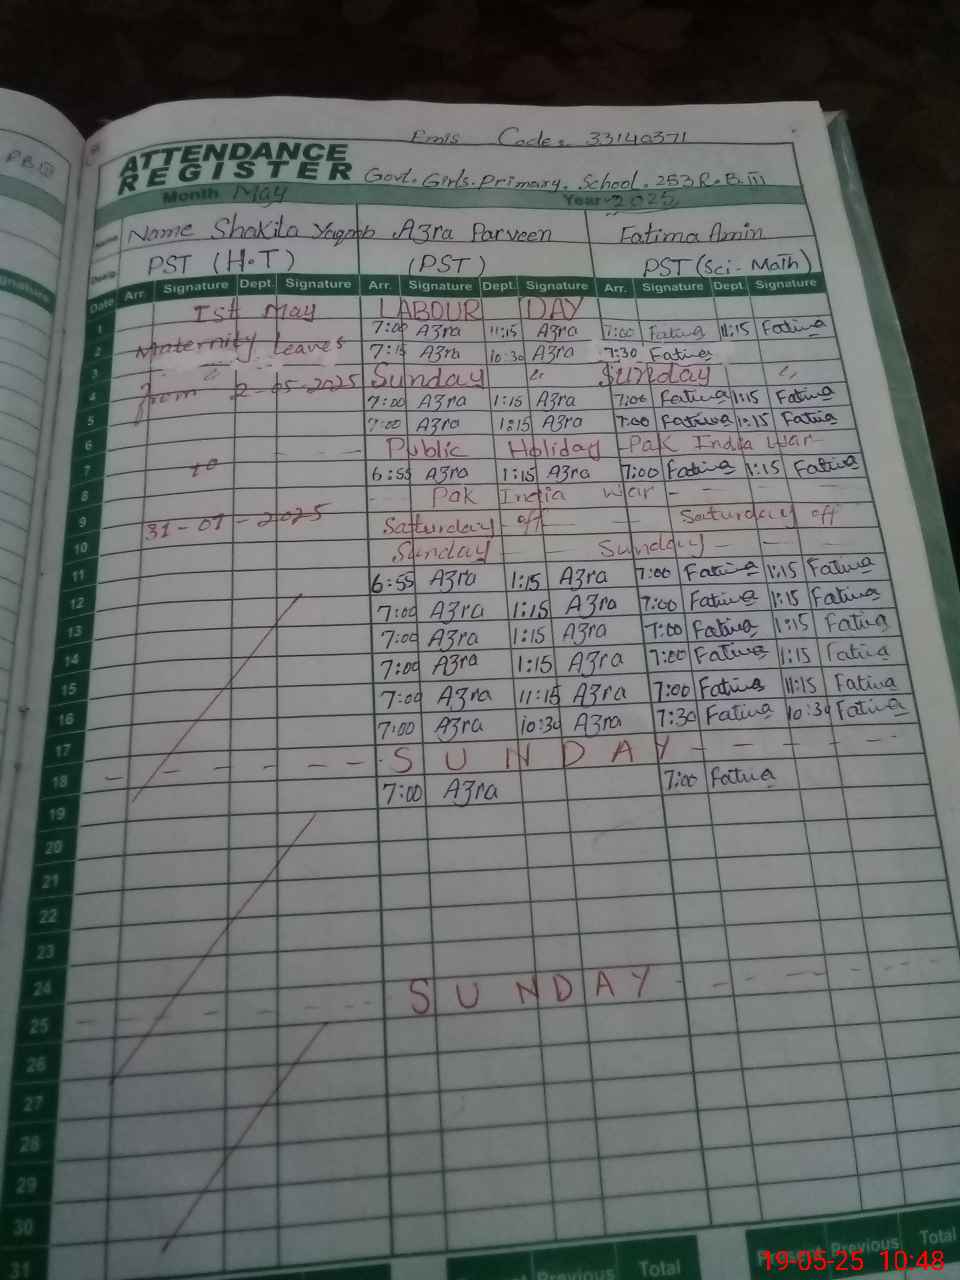 Emis Code. 33140371
ATTENDANCE
REGISTER Govt. Girls. Primary. School. 253 R.B. III
Month May Year 2025
Name Name Shakila Yaqoob Azra Parveen Fatima Amin
PST (H.T) (PST) PST (Sci-Math)
Date Arr. Signature Dept. Signature Arr. Signature Dept. Signature Arr. Signature Dept. Signature
1 Ist May LABOUR DAY
2 Maternity Leaves 7:00 Azra 11:15 Azra 7:00 Fatima 11:15 Fatima
3 7:15 Azra 10:30 Azra 7:30 Fatima
4 from 2-05-2025 Sunday " Sunday "
5 7:00 Azra 1:15 Azra 7:00 Fatima 1:15 Fatima
6 7:00 Azra 1:15 Azra 7:00 Fatima 1:15 Fatima
7 Public Holiday Pak India War
8 to 6:55 Azra 1:15 Azra 7:00 Fatima 1:15 Fatima
9 Pak India war
10 31-07-2025 Saturday off Saturday off
11 Sunday Sunday
12 6:55 Azra 1:15 Azra 7:00 Fatima 1:15 Fatima
13 7:00 Azra 1:15 Azra 7:00 Fatima 1:15 Fatima
14 7:00 Azra 1:15 Azra 7:00 Fatima 1:15 Fatima
15 7:00 Azra 1:15 Azra 7:00 Fatima 1:15 Fatima
16 7:00 Azra 11:15 Azra 7:00 Fatima 11:15 Fatima
17 7:00 Azra 10:30 Azra 7:30 Fatima 10:30 Fatima
18 SUNDAY
19 7:00 Azra 7:00 Fatima
20
21
22
23
24
25 SUNDAY
26
27
28
29
30
31
Previous Total Present Previous Total
19-05-25 10:48